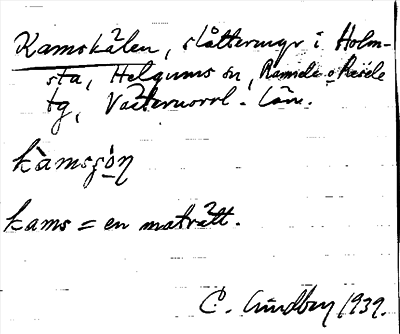 Kamskälen, slåttermyr i Holm-
sta, Helgums sn, Ramsele o Resele
tg, Västernorrl. län.
kàmsʂo̱n
kams = en maträtt.
C. Lundbey 1939.